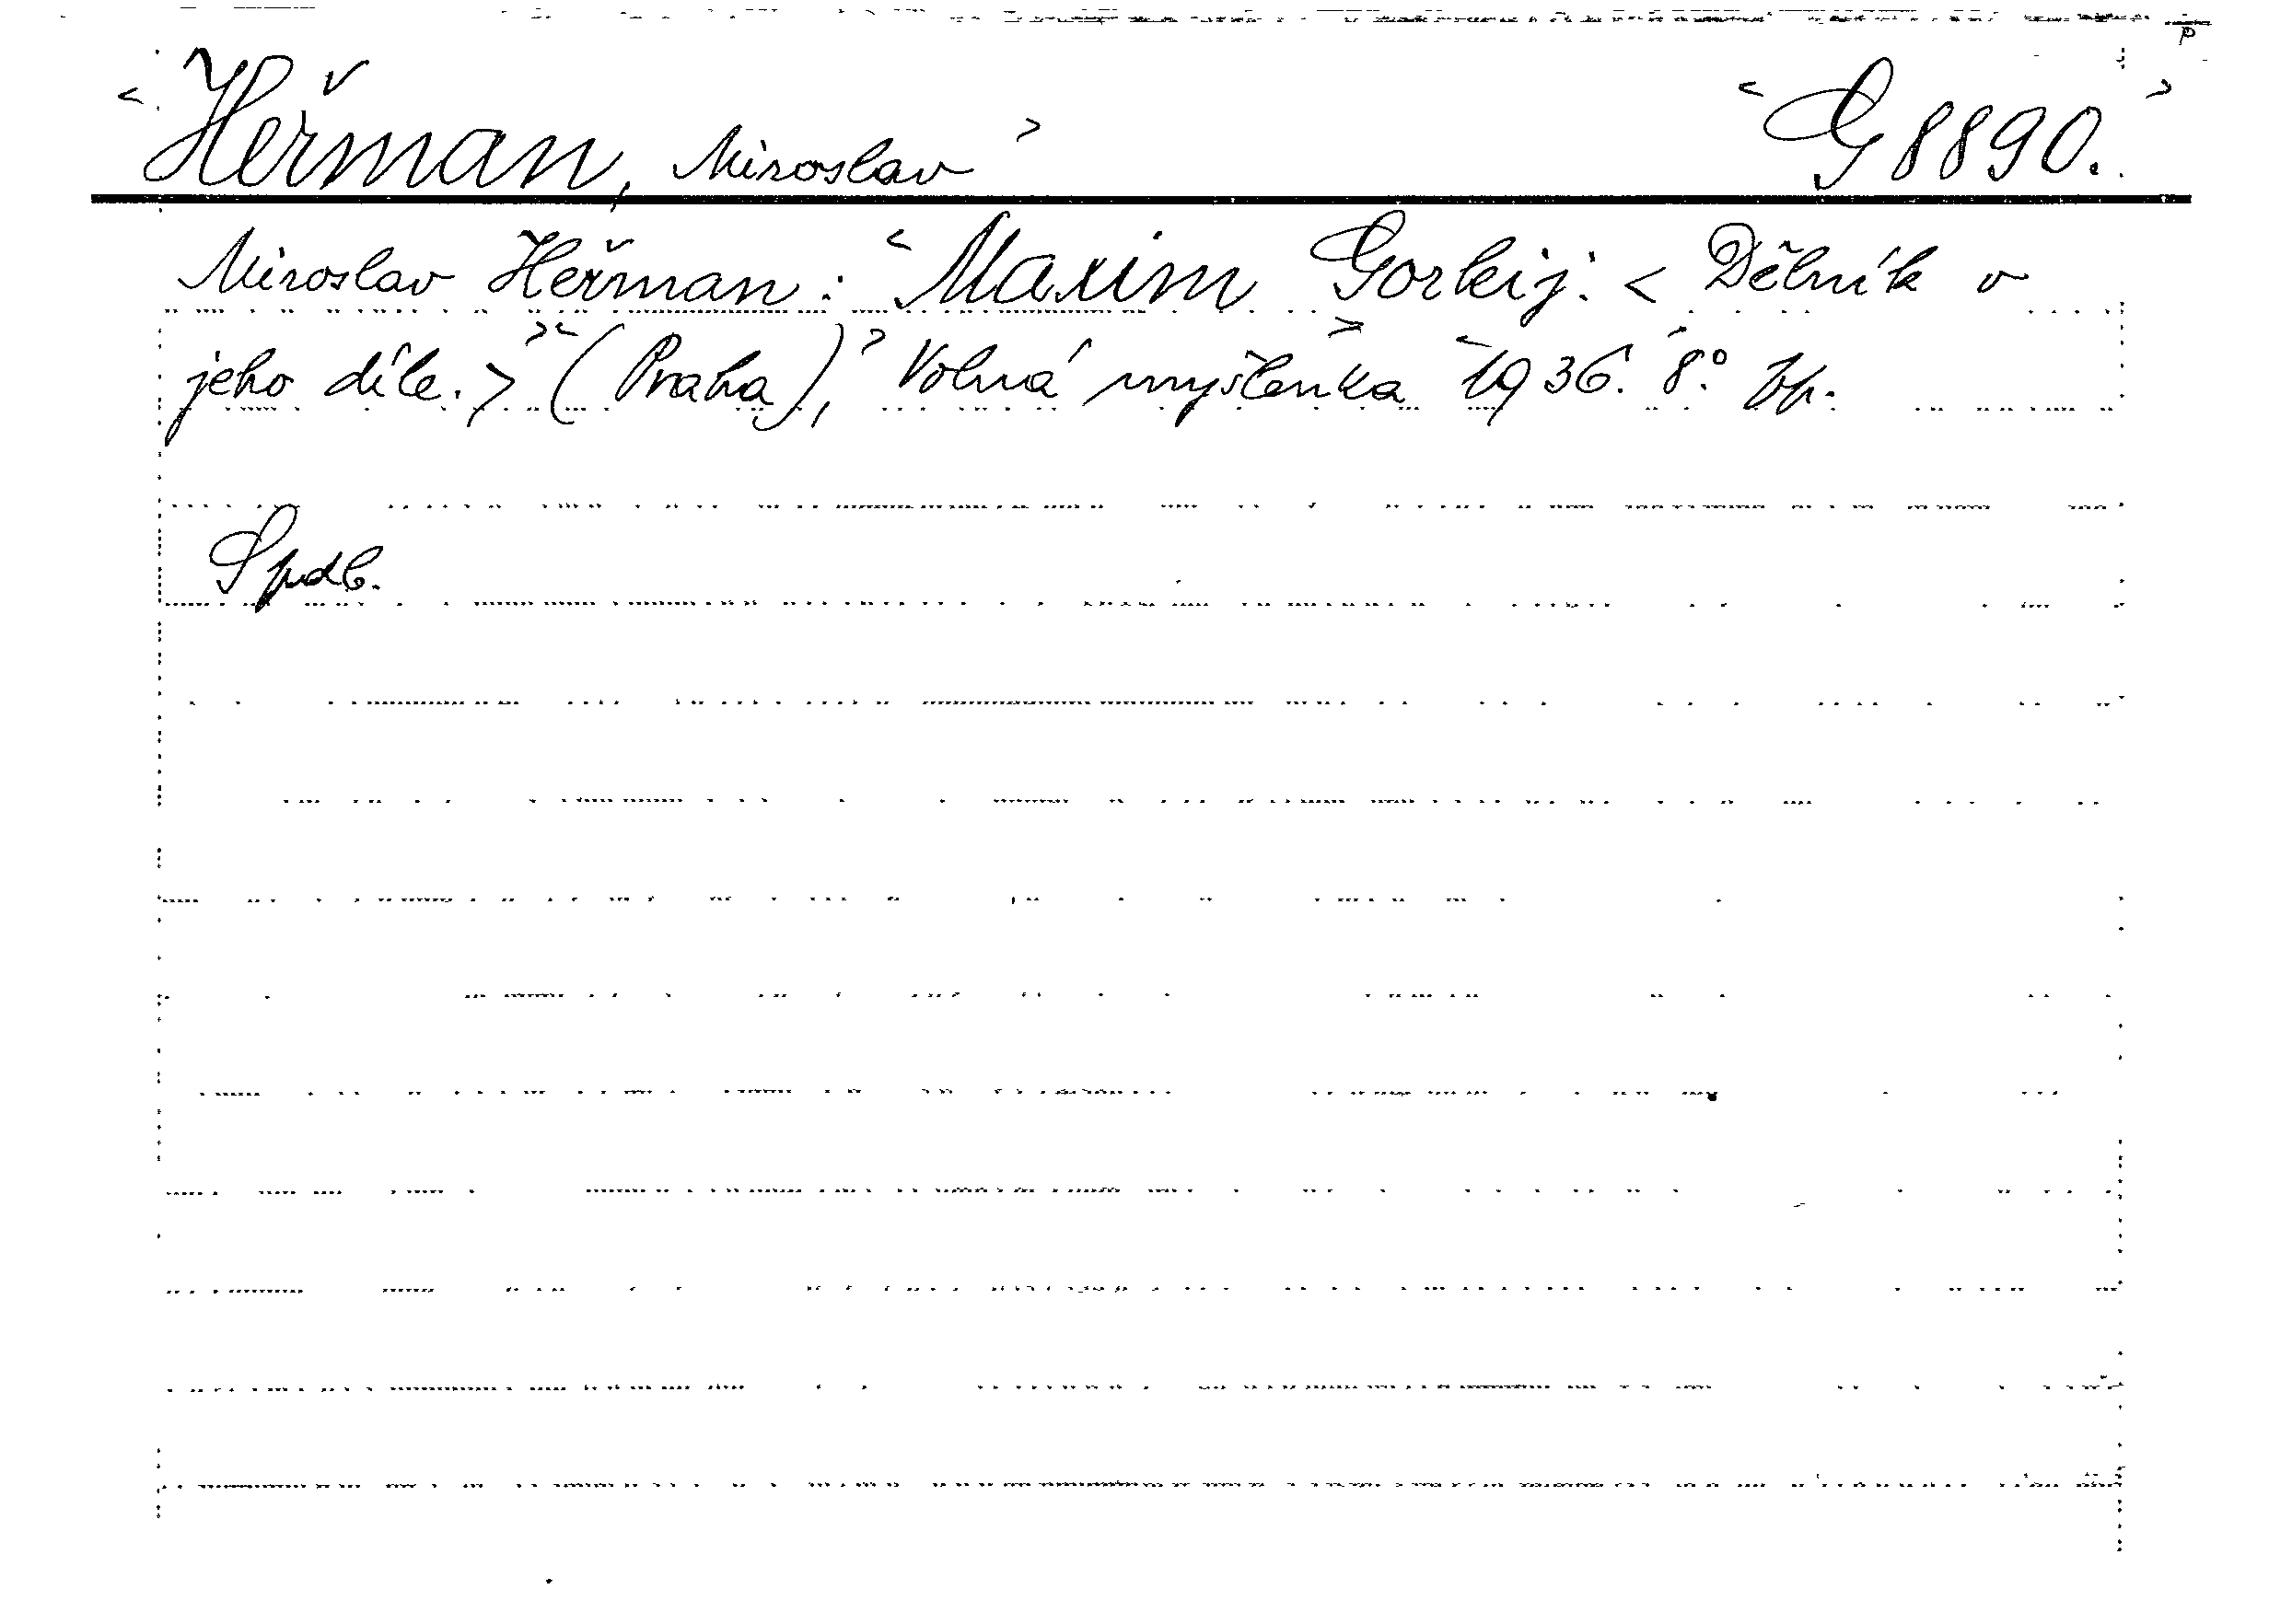 <Heřman, Miroslav> <G 8890.>
Miroslav Heřman: <Maxim Gorkij. <Dělník v
jeho díle.>> <(Praha),> Volná myšlenka> <1936. 8°
Spdb.